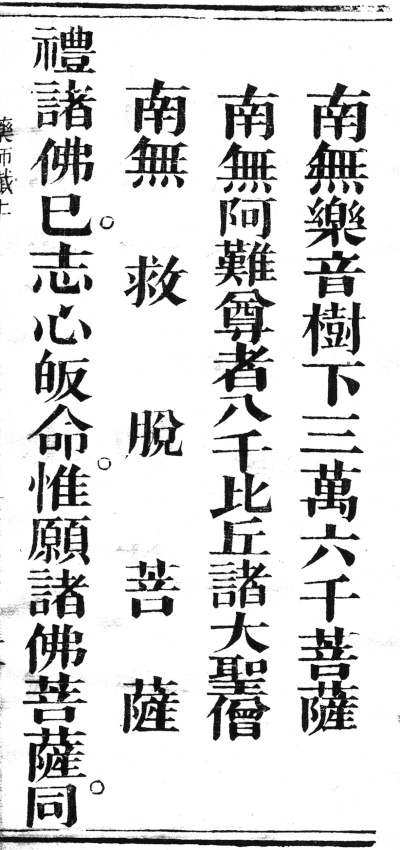 南無樂音樹下三萬六千菩薩
南無阿難尊者八千比丘諸大聖僧
南無救脫菩薩
禮諸佛已。志心皈命。惟願諸佛菩薩。同